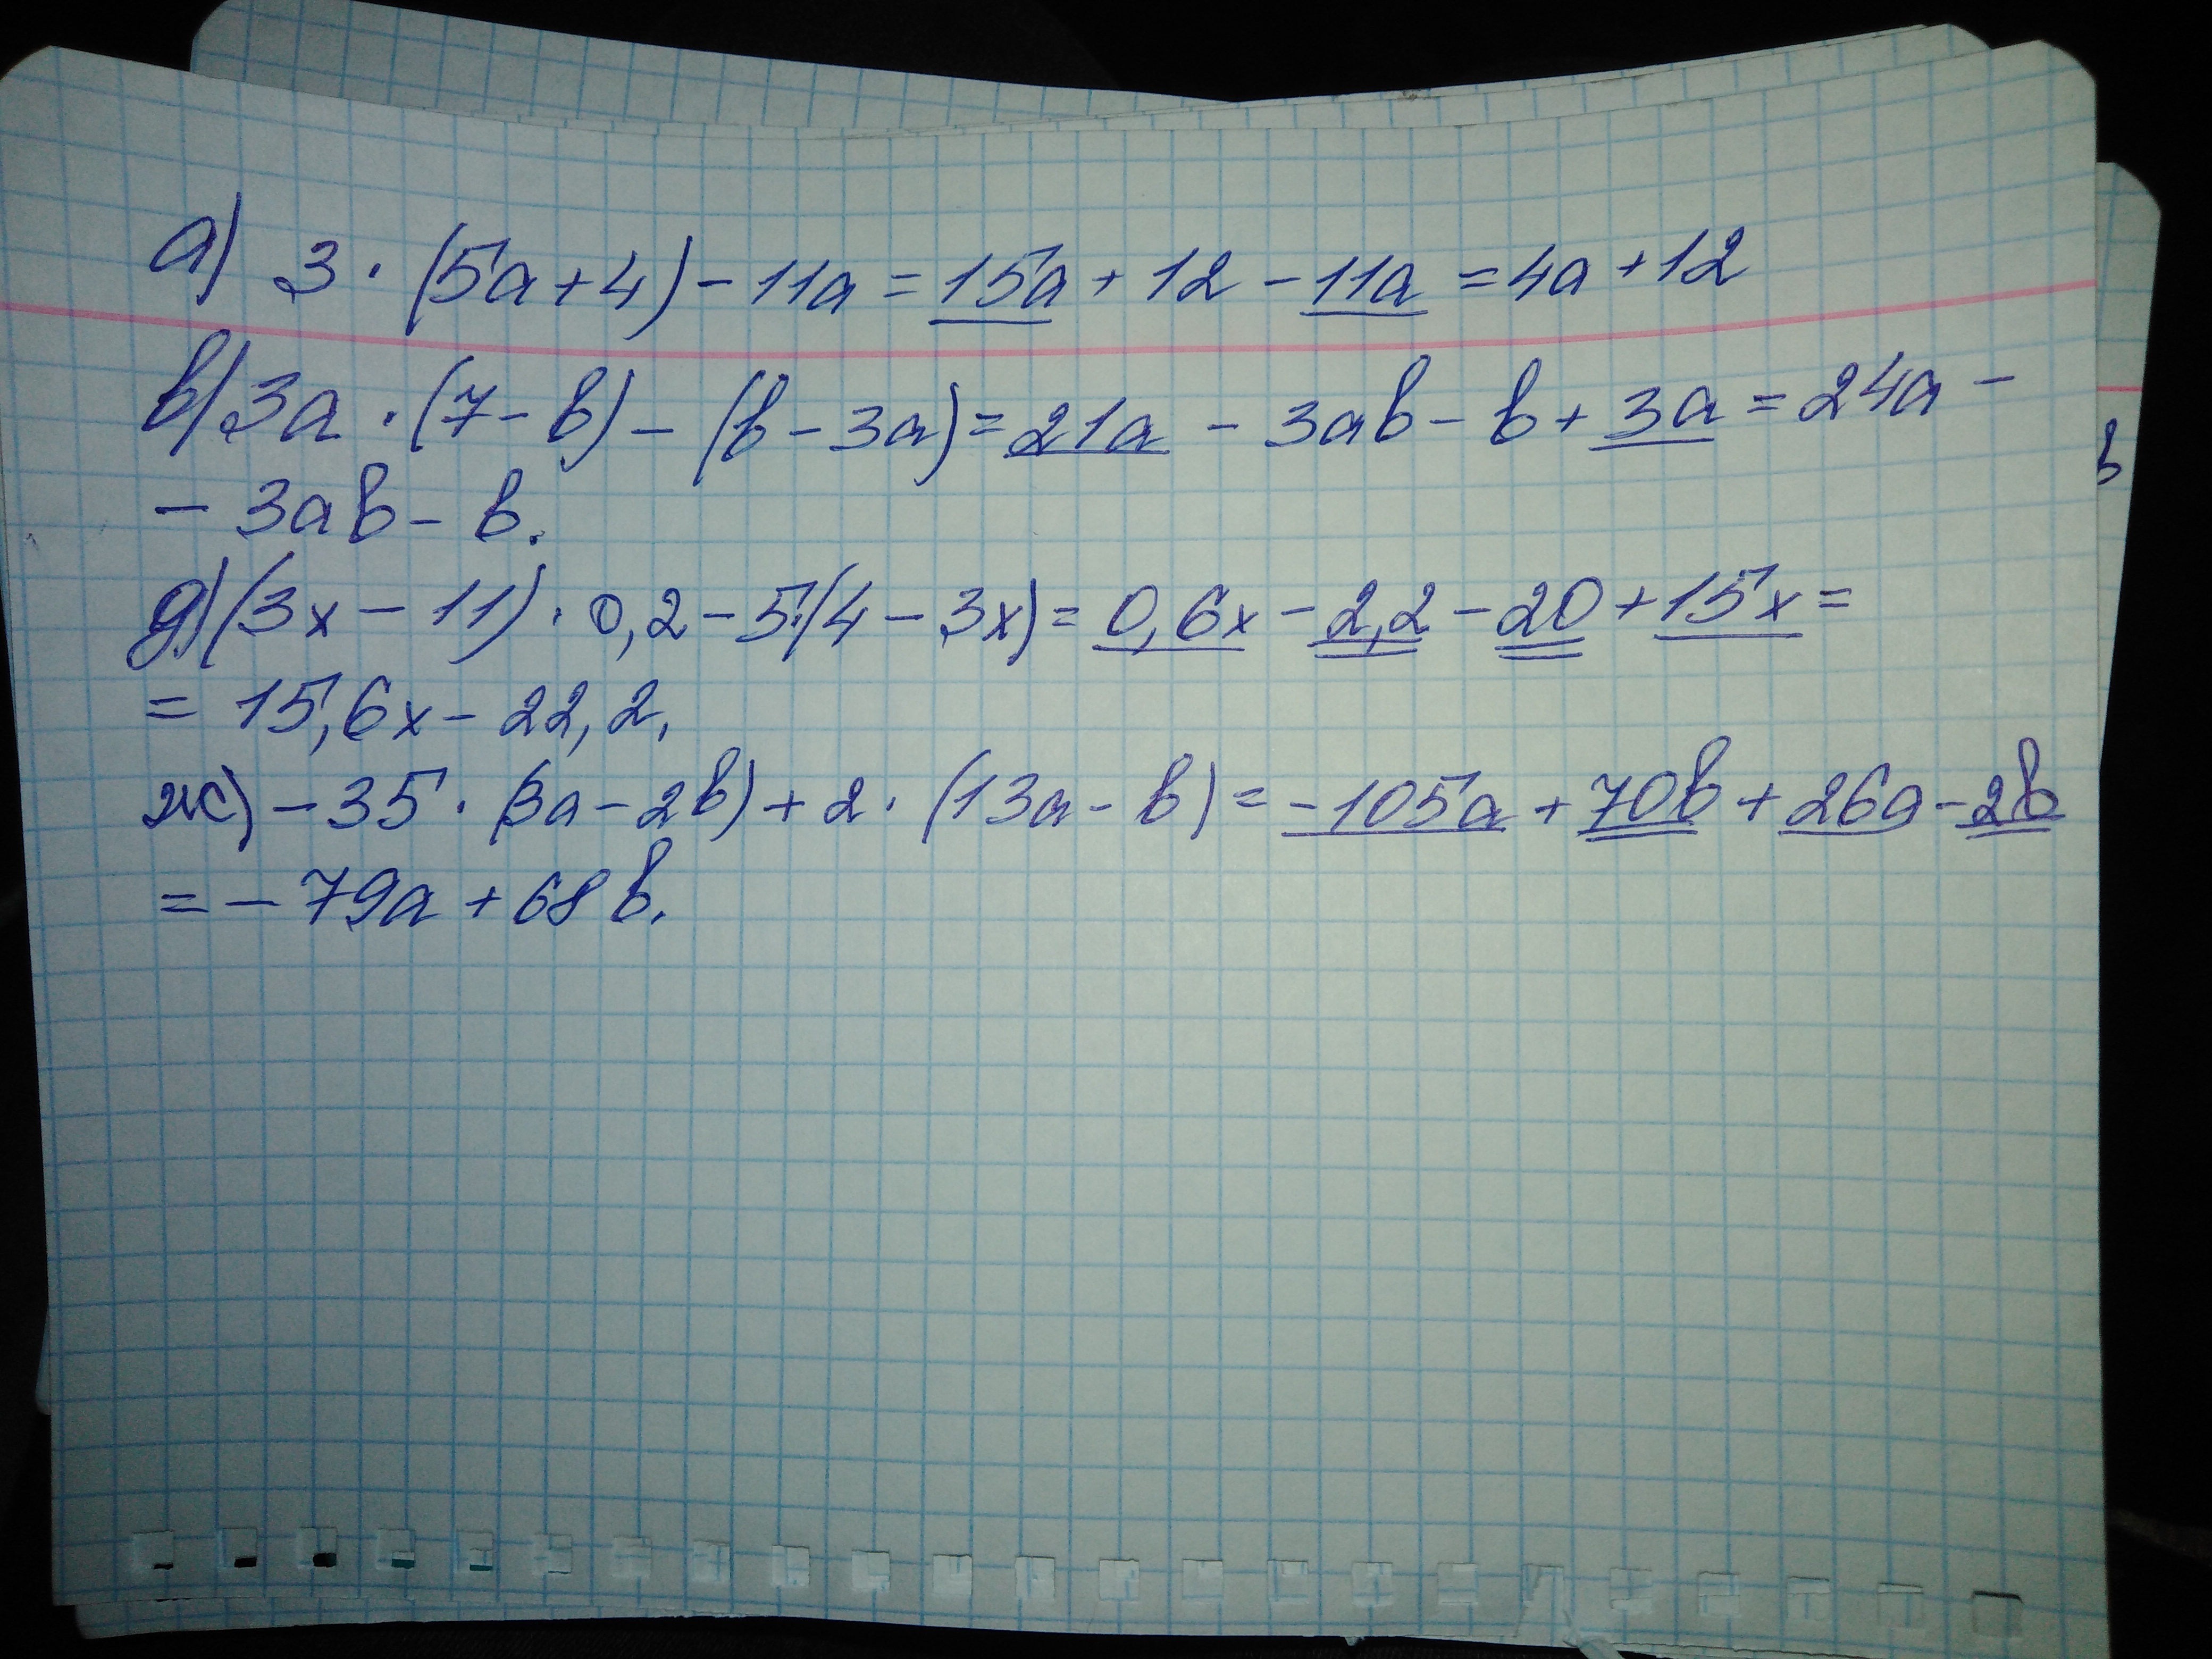 а) 3 · (5a+4) - 11a = 15a + 12 - 11a = 4a + 12
в) 3a · (7 - b) - (b - 3a) = 21a - 3ab - b + 3a = 24a -
- 3ab - b.
д) (3x - 11) · 0,2 - 5·(4 - 3x) = 0,6x - 2,2 - 20 + 15x =
= 15,6x - 22,2.
ж) - 35 · (3a - 2b) + 2 · (13a - b) = - 105a + 70b + 26a - 2b
= - 79a + 68b.
b